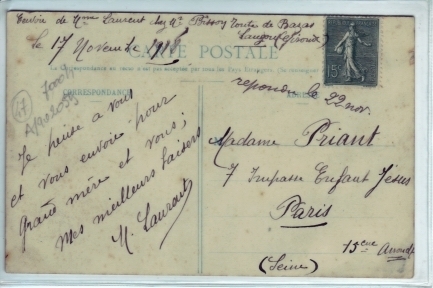 Envoi de Mme Laurent chez Mr Route de Bazas
Langon (Gironde)
le 17 Novembre
CARTE POSTALE
La Correspondance au recto n'est pas acceptée par tous les Pays Étrangers. (Se renseigner
CORRESPONDANCE
répondu le 22 nov.
15
47
Je pense à vous
et vous envoie pour
Grand mère et vous,
mes meilleurs baisers
M. Laurent
Madame Priant
7 Impasse Enfant Jésus
Paris
15eme Arrondt
(Seine)